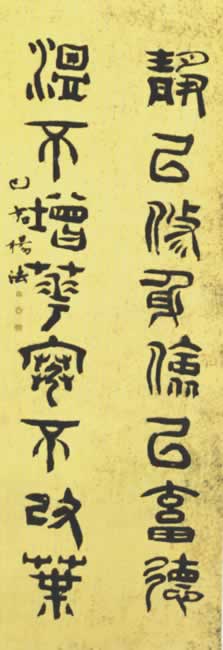 靜以修身儉以畜德
溫不增華寒不改葉
楊法